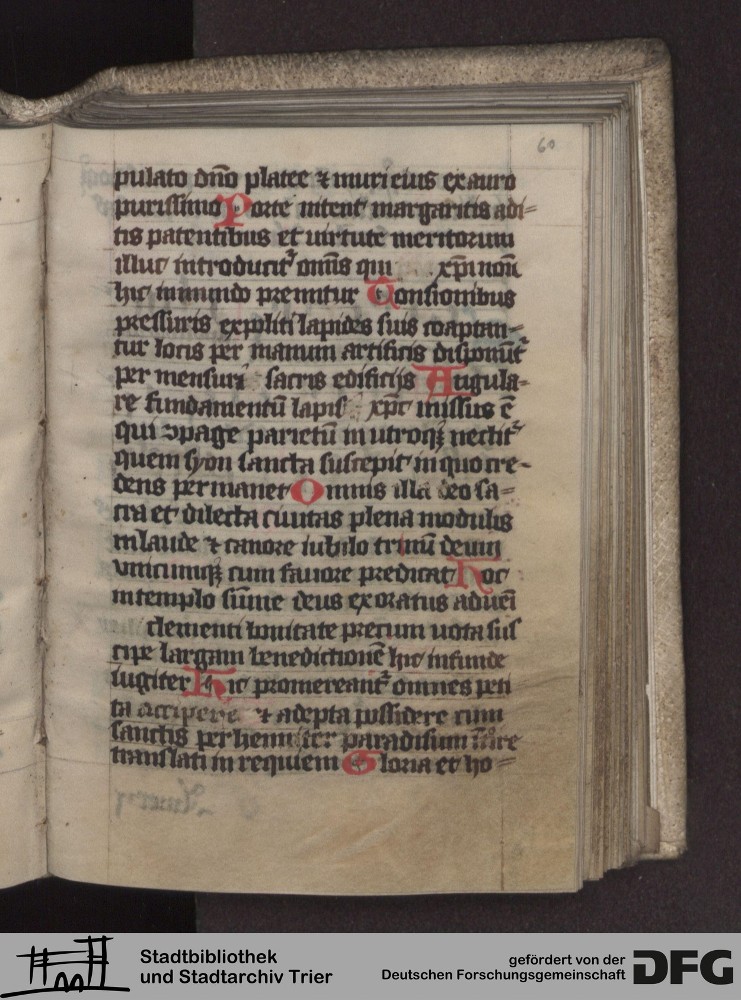 60
pulato dn̄o platee ⁊ muri eius ex auro
purissimo Porte nitent margaritis adi=
tis patentibus et uirtute meritorum
illuc introducit᷑ om̄is qui xp̄i nōīe
hic in mundo premitur Tonsionibus
pressuris expoliti lapides suis coaptan=
tur locis per manum artificis disponūt᷑
per mensuri sacris edificijs Angula=
re fundamentū lapis xp̄c missus ē
qui ↄpage parietū in utroqꝫ nectit᷑
quem syon sancta suscepit in quo cre-
dens permanet Omnis illa deo sa=
cra et dilecta ciuitas plena modulis
in laude ⁊ canore iubilo trinū deum
vnicumqꝫ cum fauore predicat Hoc
in templo sūme deus exoratus adueī
clementi bonitate precum uota sus
cipe largam benedictionē hic infunde
iugiter Hic promereant᷑ omnes peti
ta accipere ⁊ adepta possidere cum
sanctis perhenniter paradisum
translati in requiem Gloria et ho=
Stadtbibliothek
und Stadtarchiv Trier
gefördert von der
Deutschen Forschungsgemeinschaft
DFG